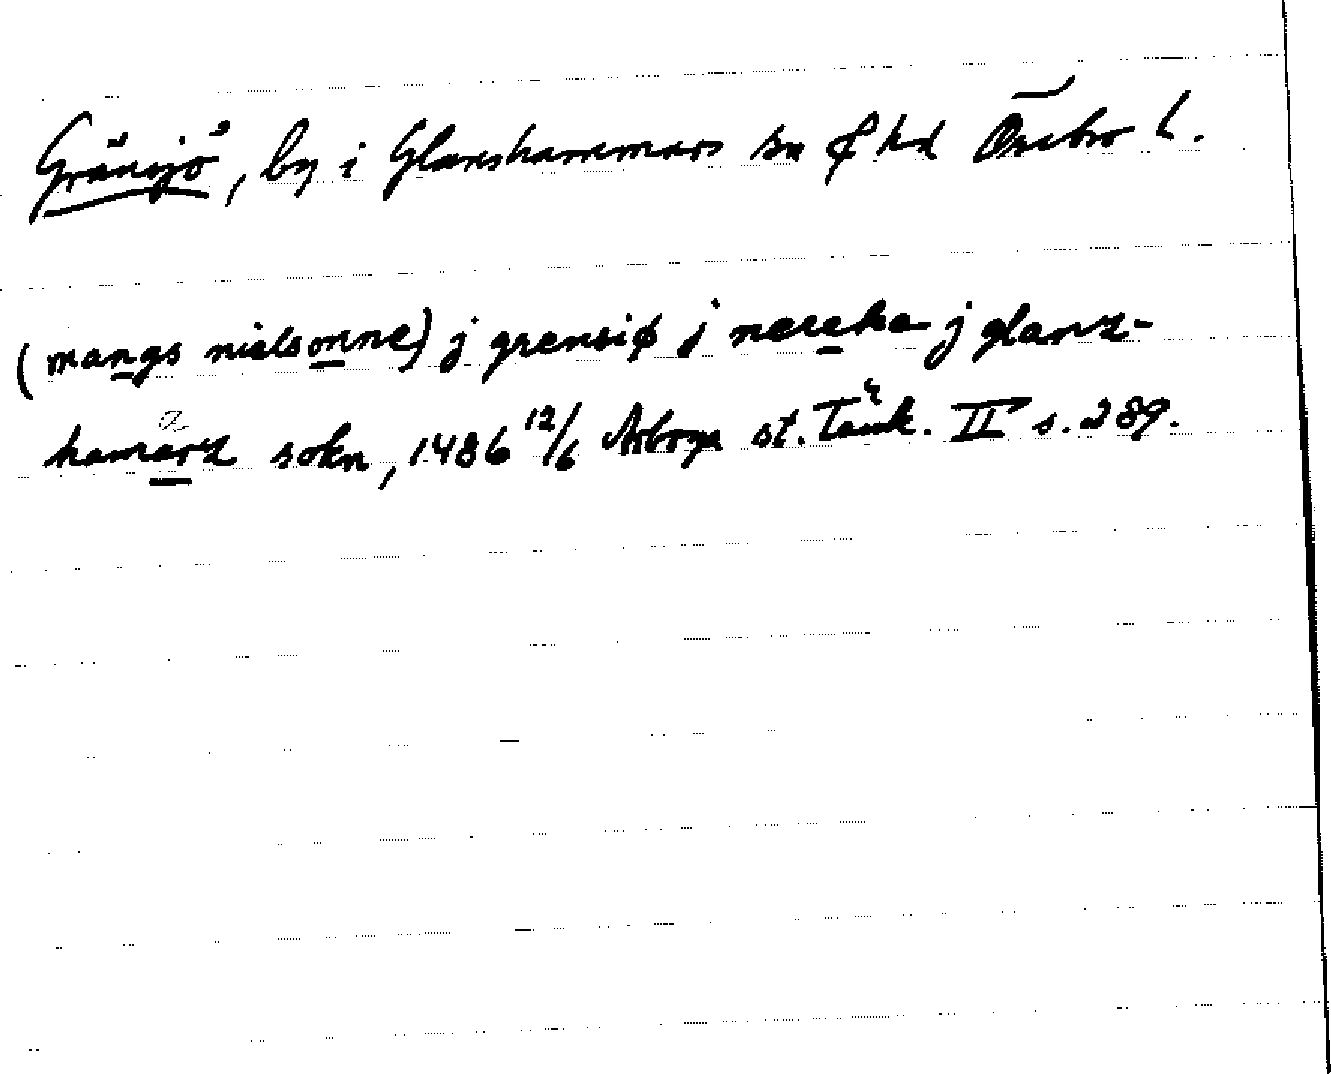 Gränsjö, by i Glanshammars sn o hd Örebro l.
(mangs nielsonne) j grensiø j næreka j glanz-
hamarz sokn, 1486 12/6 Arboga st. Tänk. II s. 289.